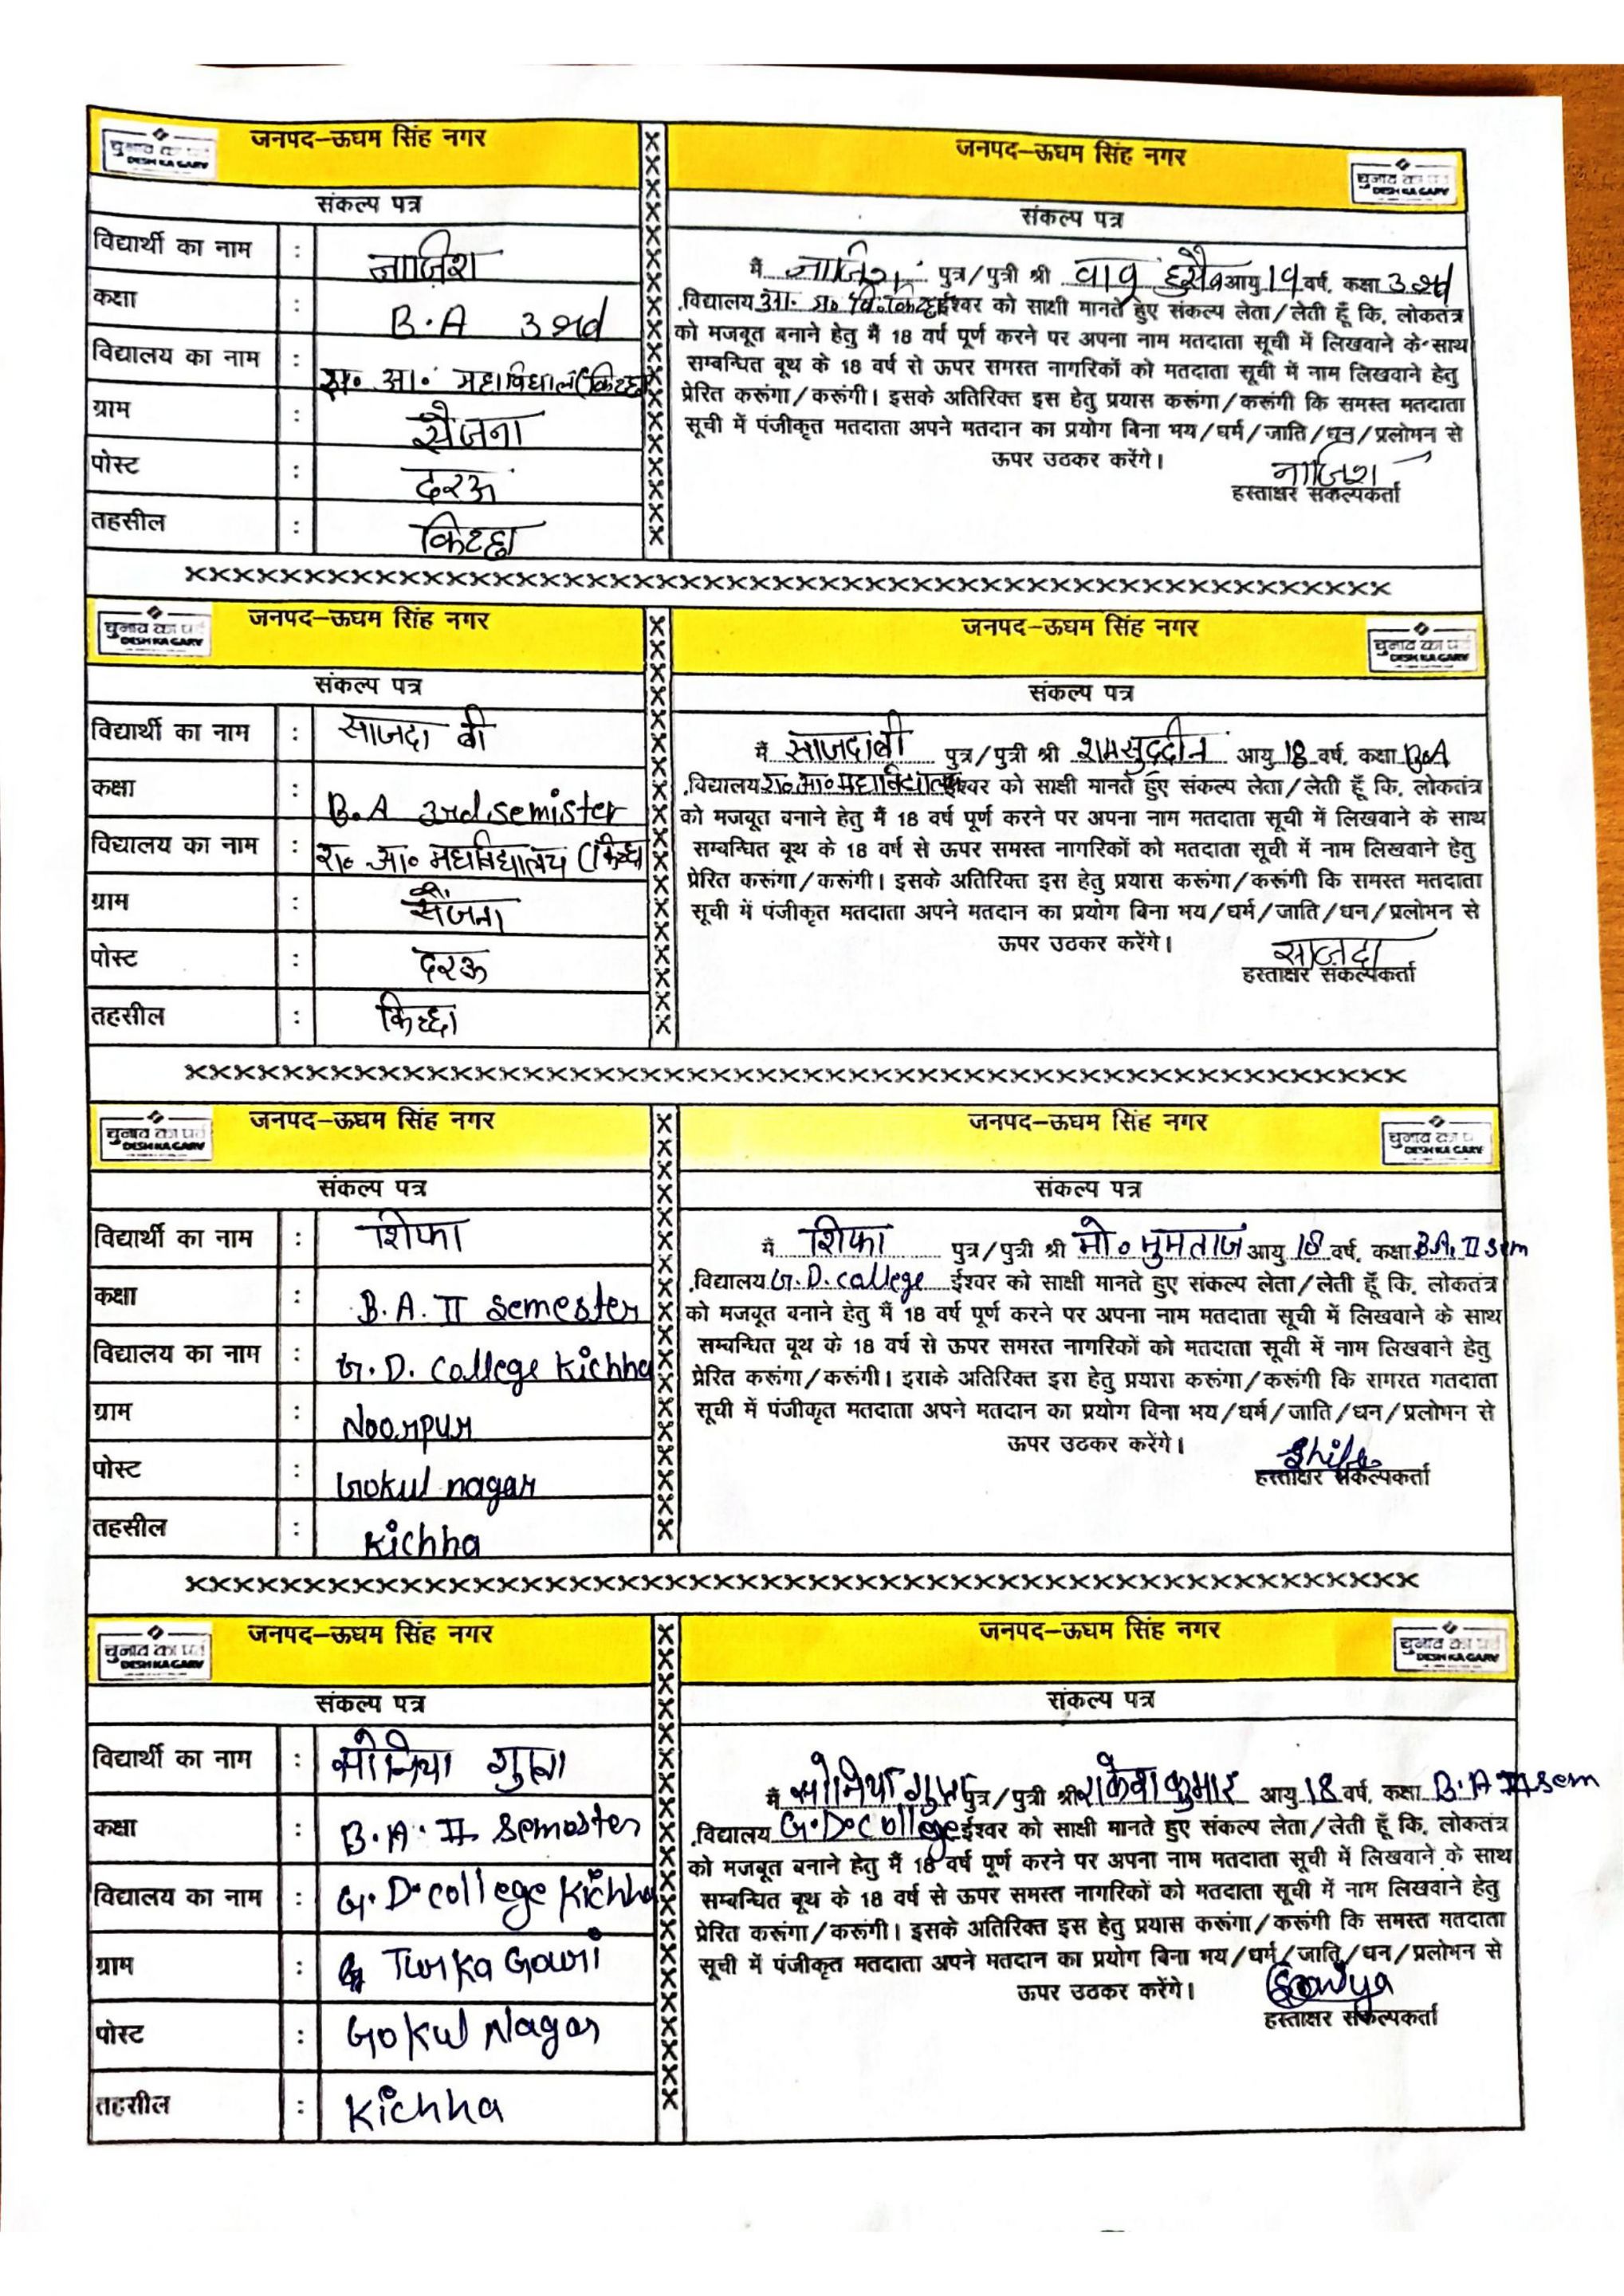 चुनाव का पर्व
DESH KA GARV
जनपद–ऊधम सिंह नगर
संकल्प पत्र
विद्यार्थी का नाम : नाजिश
कक्षा : B.A 3rd
विद्यालय का नाम : रा. आ. महाविद्यालय (किच्छा
ग्राम : सैजना
पोस्ट : दरऊ
तहसील : किच्छा
जनपद–ऊधम सिंह नगर
चुनाव का पर्व
DESH KA GARV
संकल्प पत्र
मैं नाजिश पुत्र/पुत्री श्री बाबु हुसैन आयु 19 वर्ष, कक्षा 3rd
,विद्यालय ईश्वर को साक्षी मानते हुए संकल्प लेता/लेती हूँ कि, लोकतंत्र
को मजबूत बनाने हेतु मैं 18 वर्ष पूर्ण करने पर अपना नाम मतदाता सूची में लिखवाने के साथ
सम्बन्धित बूथ के 18 वर्ष से ऊपर समस्त नागरिकों को मतदाता सूची में नाम लिखवाने हेतु
प्रेरित करूंगा/करूंगी। इसके अतिरिक्त इस हेतु प्रयास करूंगा/करूंगी कि समस्त मतदाता
सूची में पंजीकृत मतदाता अपने मतदान का प्रयोग बिना भय/धर्म/जाति/धन/प्रलोभन से
ऊपर उठकर करेंगे।
नाजिश
हस्ताक्षर संकल्पकर्ता
चुनाव का पर्व
DESH KA GARV
जनपद–ऊधम सिंह नगर
संकल्प पत्र
विद्यार्थी का नाम : साजदा बी
कक्षा : B.A 3rd semister
विद्यालय का नाम : रा० आ० महाविद्यालय (किच्छा
ग्राम : सैंजना
पोस्ट : दरऊ
तहसील : किच्छा
जनपद–ऊधम सिंह नगर
चुनाव का पर्व
DESH KA GARV
संकल्प पत्र
मैं साजदा बी पुत्र/पुत्री श्री शमसुद्दीन आयु 18 वर्ष, कक्षा B.A
,विद्यालय रा० आ० महाविद्यालय ईश्वर को साक्षी मानते हुए संकल्प लेता/लेती हूँ कि, लोकतंत्र
को मजबूत बनाने हेतु मैं 18 वर्ष पूर्ण करने पर अपना नाम मतदाता सूची में लिखवाने के साथ
सम्बन्धित बूथ के 18 वर्ष से ऊपर समस्त नागरिकों को मतदाता सूची में नाम लिखवाने हेतु
प्रेरित करूंगा/करूंगी। इसके अतिरिक्त इस हेतु प्रयास करूंगा/करूंगी कि समस्त मतदाता
सूची में पंजीकृत मतदाता अपने मतदान का प्रयोग बिना भय/धर्म/जाति/धन/प्रलोभन से
ऊपर उठकर करेंगे।
साजदा
हस्ताक्षर संकल्पकर्ता
चुनाव का पर्व
DESH KA GARV
जनपद–ऊधम सिंह नगर
संकल्प पत्र
विद्यार्थी का नाम : शिफा
कक्षा : B.A. II semester
विद्यालय का नाम : G.D. college Kichha
ग्राम : Noorpur
पोस्ट : Gokul nagar
तहसील : Kichha
जनपद–ऊधम सिंह नगर
चुनाव का पर्व
DESH KA GARV
संकल्प पत्र
मैं शिफा पुत्र/पुत्री श्री मो० मुमताज आयु 18 वर्ष, कक्षा B.A. II sem
,विद्यालय G.D. college ईश्वर को साक्षी मानते हुए संकल्प लेता/लेती हूँ कि, लोकतंत्र
को मजबूत बनाने हेतु मैं 18 वर्ष पूर्ण करने पर अपना नाम मतदाता सूची में लिखवाने के साथ
सम्बन्धित बूथ के 18 वर्ष से ऊपर समस्त नागरिकों को मतदाता सूची में नाम लिखवाने हेतु
प्रेरित करूंगा/करूंगी। इसके अतिरिक्त इस हेतु प्रयास करूंगा/करूंगी कि समस्त मतदाता
सूची में पंजीकृत मतदाता अपने मतदान का प्रयोग बिना भय/धर्म/जाति/धन/प्रलोभन से
ऊपर उठकर करेंगे।
Shifa
हस्ताक्षर संकल्पकर्ता
चुनाव का पर्व
DESH KA GARV
जनपद–ऊधम सिंह नगर
संकल्प पत्र
विद्यार्थी का नाम : सोनिया गुप्ता
कक्षा : B.A. II Semester
विद्यालय का नाम : G.D. college Kichha
ग्राम : Turka Gowri
पोस्ट : Gokul Nagar
तहसील : Kichha
जनपद–ऊधम सिंह नगर
चुनाव का पर्व
DESH KA GARV
संकल्प पत्र
मैं सोनिया गुप्ता पुत्र/पुत्री श्री राकेश कुमार आयु 18 वर्ष, कक्षा B.A II sem
,विद्यालय G.D. college ईश्वर को साक्षी मानते हुए संकल्प लेता/लेती हूँ कि, लोकतंत्र
को मजबूत बनाने हेतु मैं 18 वर्ष पूर्ण करने पर अपना नाम मतदाता सूची में लिखवाने के साथ
सम्बन्धित बूथ के 18 वर्ष से ऊपर समस्त नागरिकों को मतदाता सूची में नाम लिखवाने हेतु
प्रेरित करूंगा/करूंगी। इसके अतिरिक्त इस हेतु प्रयास करूंगा/करूंगी कि समस्त मतदाता
सूची में पंजीकृत मतदाता अपने मतदान का प्रयोग बिना भय/धर्म/जाति/धन/प्रलोभन से
ऊपर उठकर करेंगे।
हस्ताक्षर संकल्पकर्ता